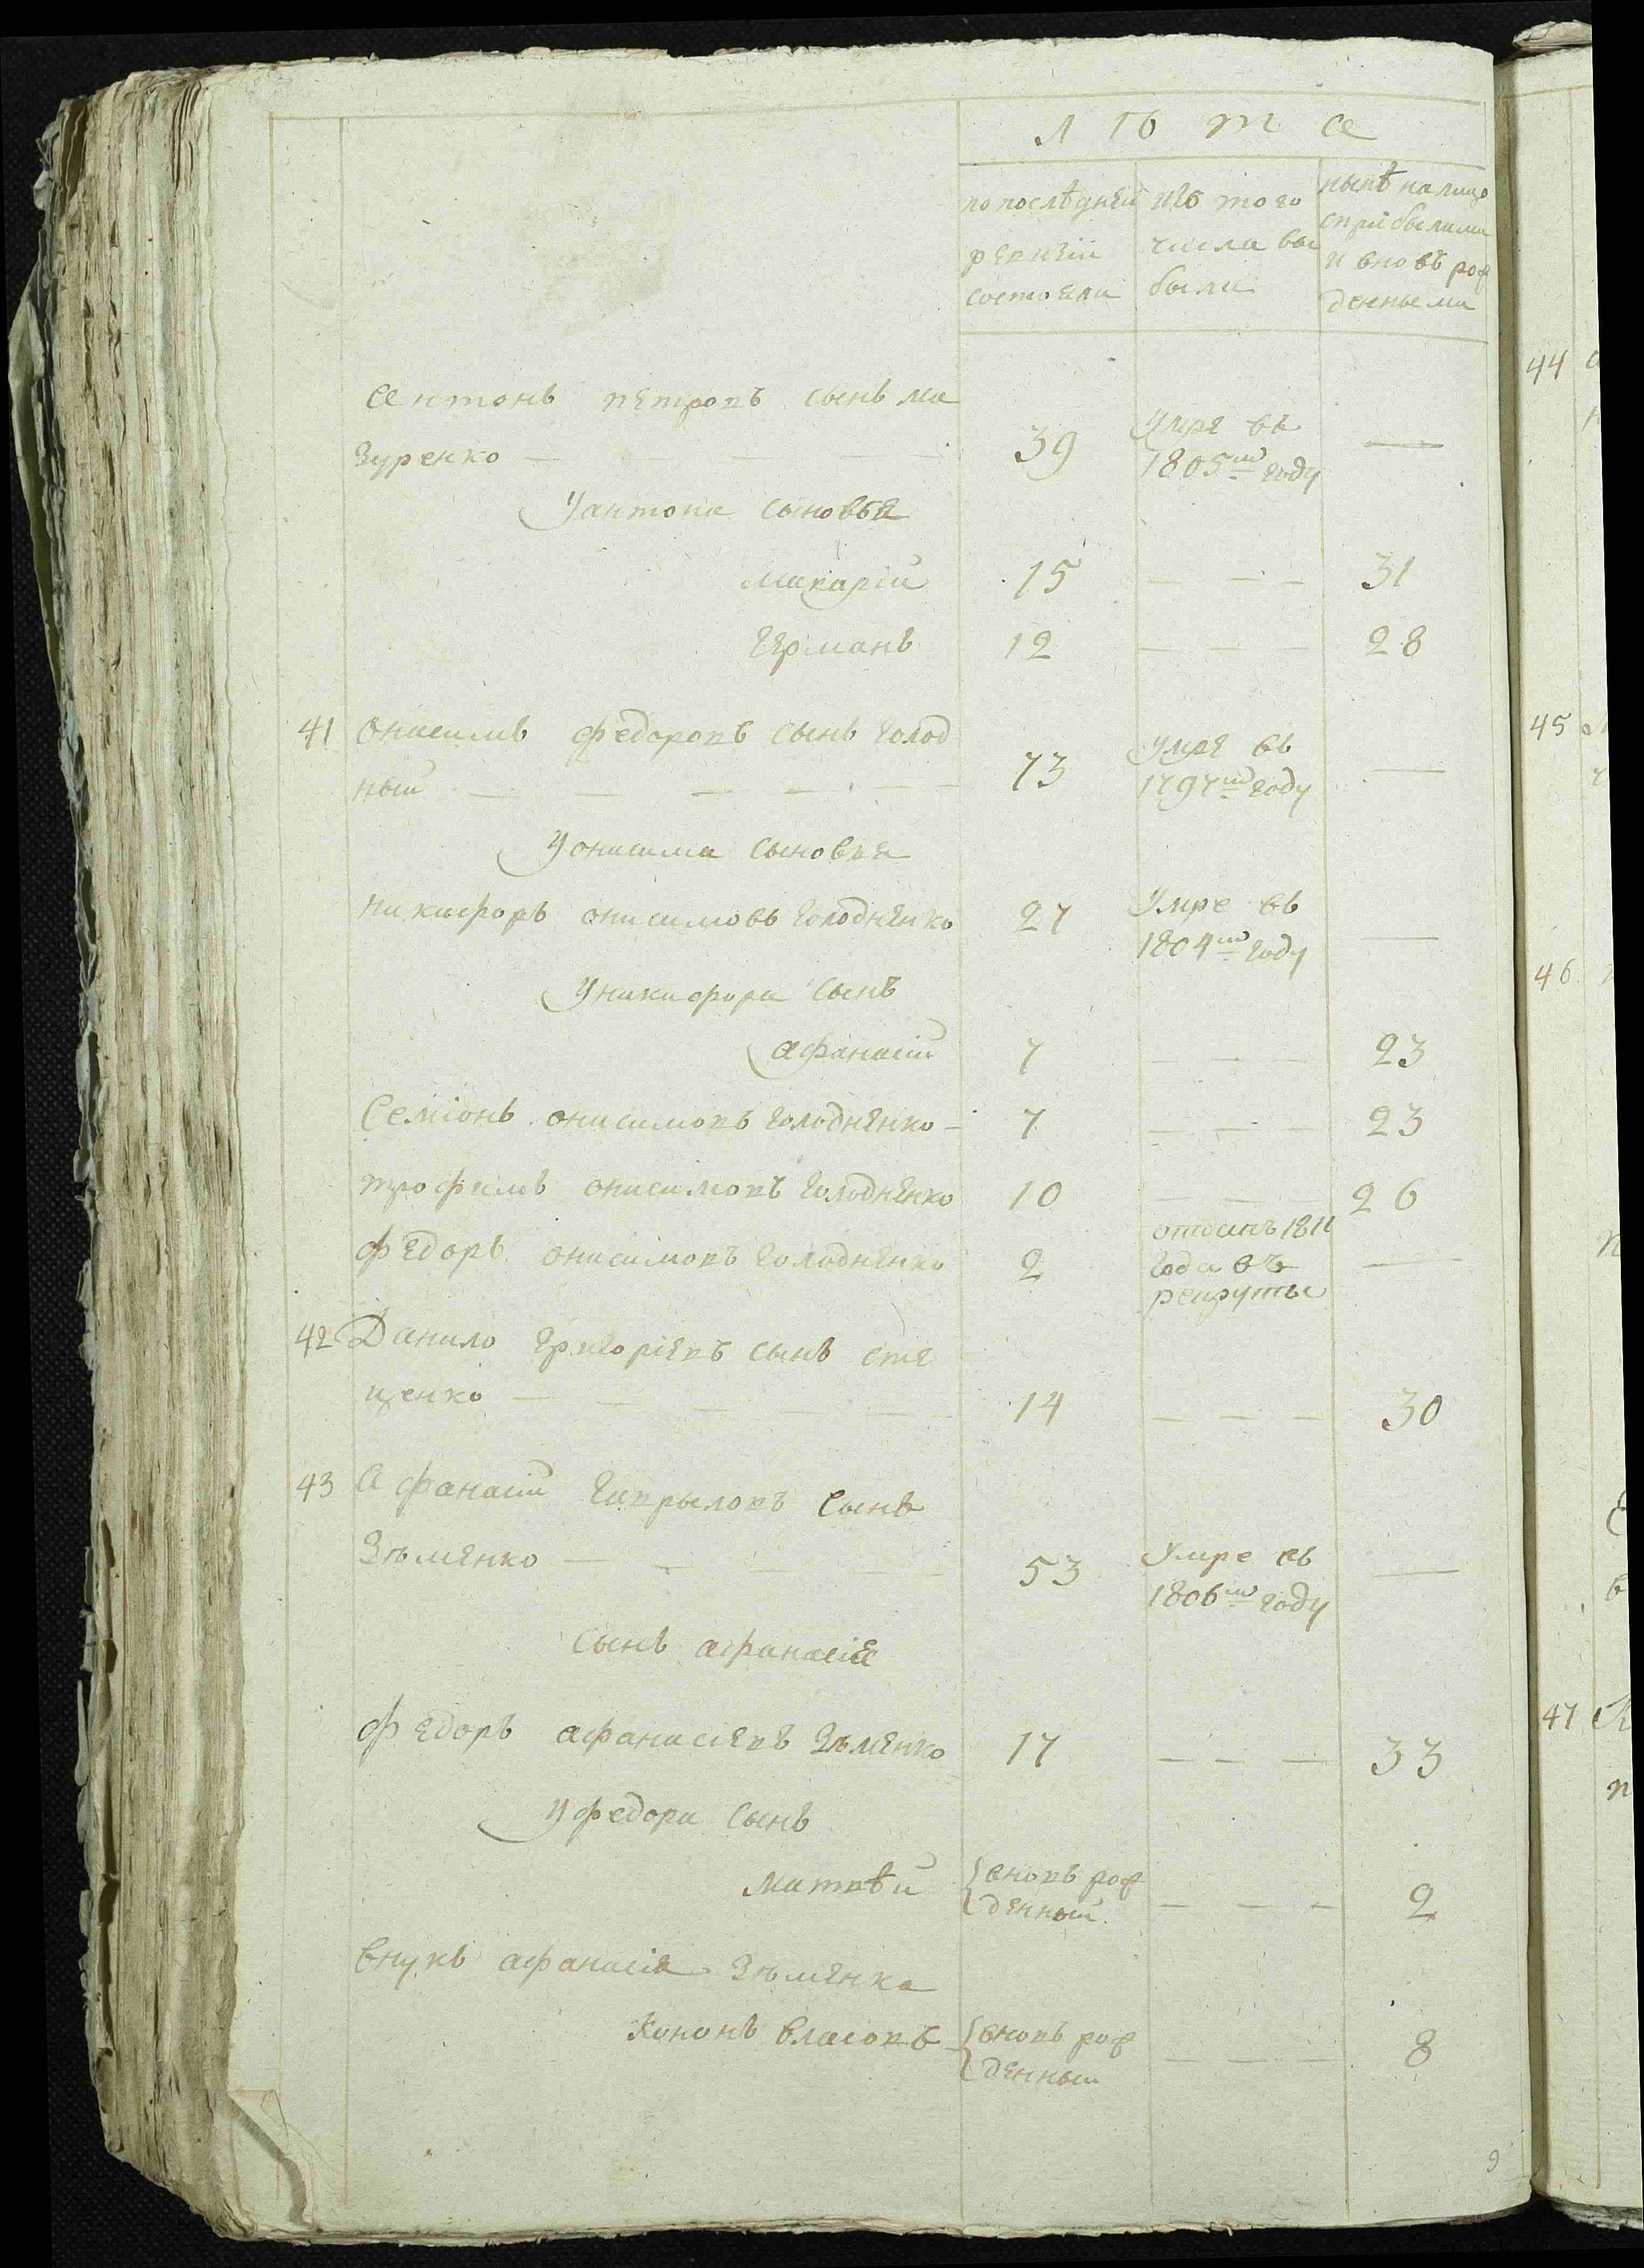 Лѣта
по послѣдней изъ того нынѣ на лицо
ревизіи числа вы съ прибылыми
состояли были и вновь рож
денными
Антонъ петровъ сынъ ма
зуренко — 39 умре въ 1805м году —
У антона сыновья
макарій 15 — — — 31
Германъ 12 — — — 28
41 Онисимъ федоровъ сынъ голод
ный — — — — — — 73 умре въ 1797м году —
У онисима сыновья
никифоръ онисимовъ голодненко 27 Умре въ 1804м году —
У никифора сынъ
афанасій 7 — — — 23
Семіонъ онисимовъ голодненко — 7 — — — 23
трофимъ онисимовъ голодненко 10 — — — 26
федоръ онисимовъ голодненко 2 отданъ 1811 года въ рекруты —
42 Данило григоріевъ сынъ сте
ценко — — — — — 14 — — — 30
43 Афанасій гаврыловъ сынъ
Зѣменко — — — — 53 Умре въ 1806м году —
сынъ афанасія
федоръ афанасіевъ Зѣменко 17 — — — 33
У федора сынъ
матвѣй вновь рож
денный — — — 2
внукъ афанасія Зѣменка
Кононъ власовъ вновь рож
денный — — — 8
9
44
45
46
47